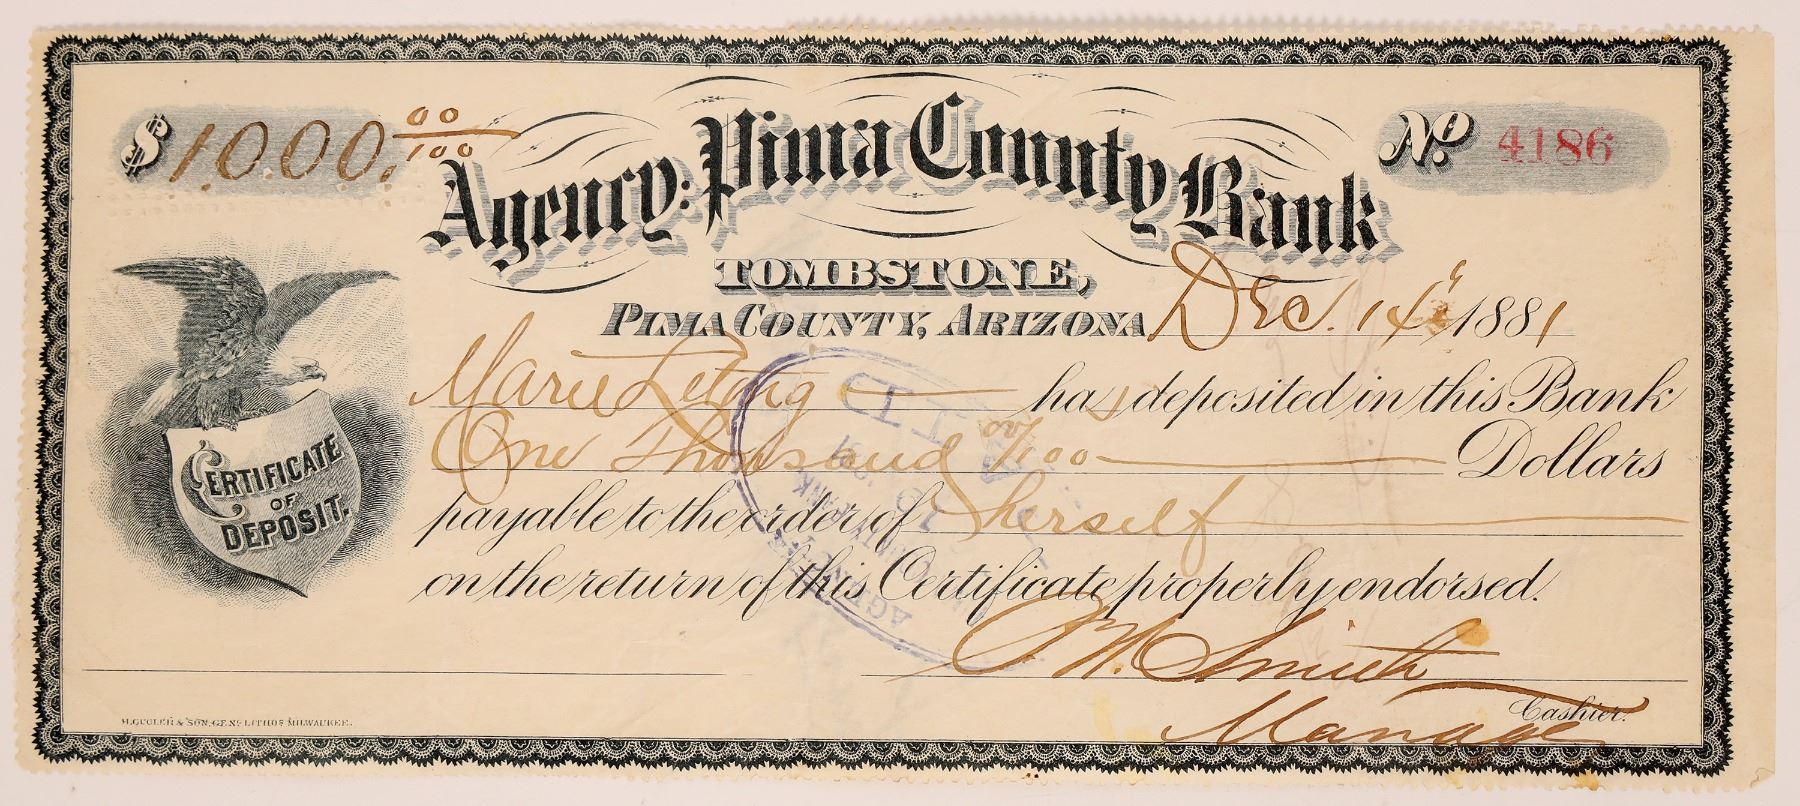 $ 1000. 00/100
Agency: Pima County Bank
No. 4186
TOMBSTONE,
PIMA COUNTY, ARIZONA Dec. 14 1881
Marie has deposited in this Bank
One Thousand 00/100 Dollars
payable to the order of herself
on the return of this Certificate properly endorsed.
CERTIFICATE
OF
DEPOSIT.
Smith
Cashier.
Manager
H. GUGLER & SON, GEN. LITHOS MILWAUKEE.
PAID